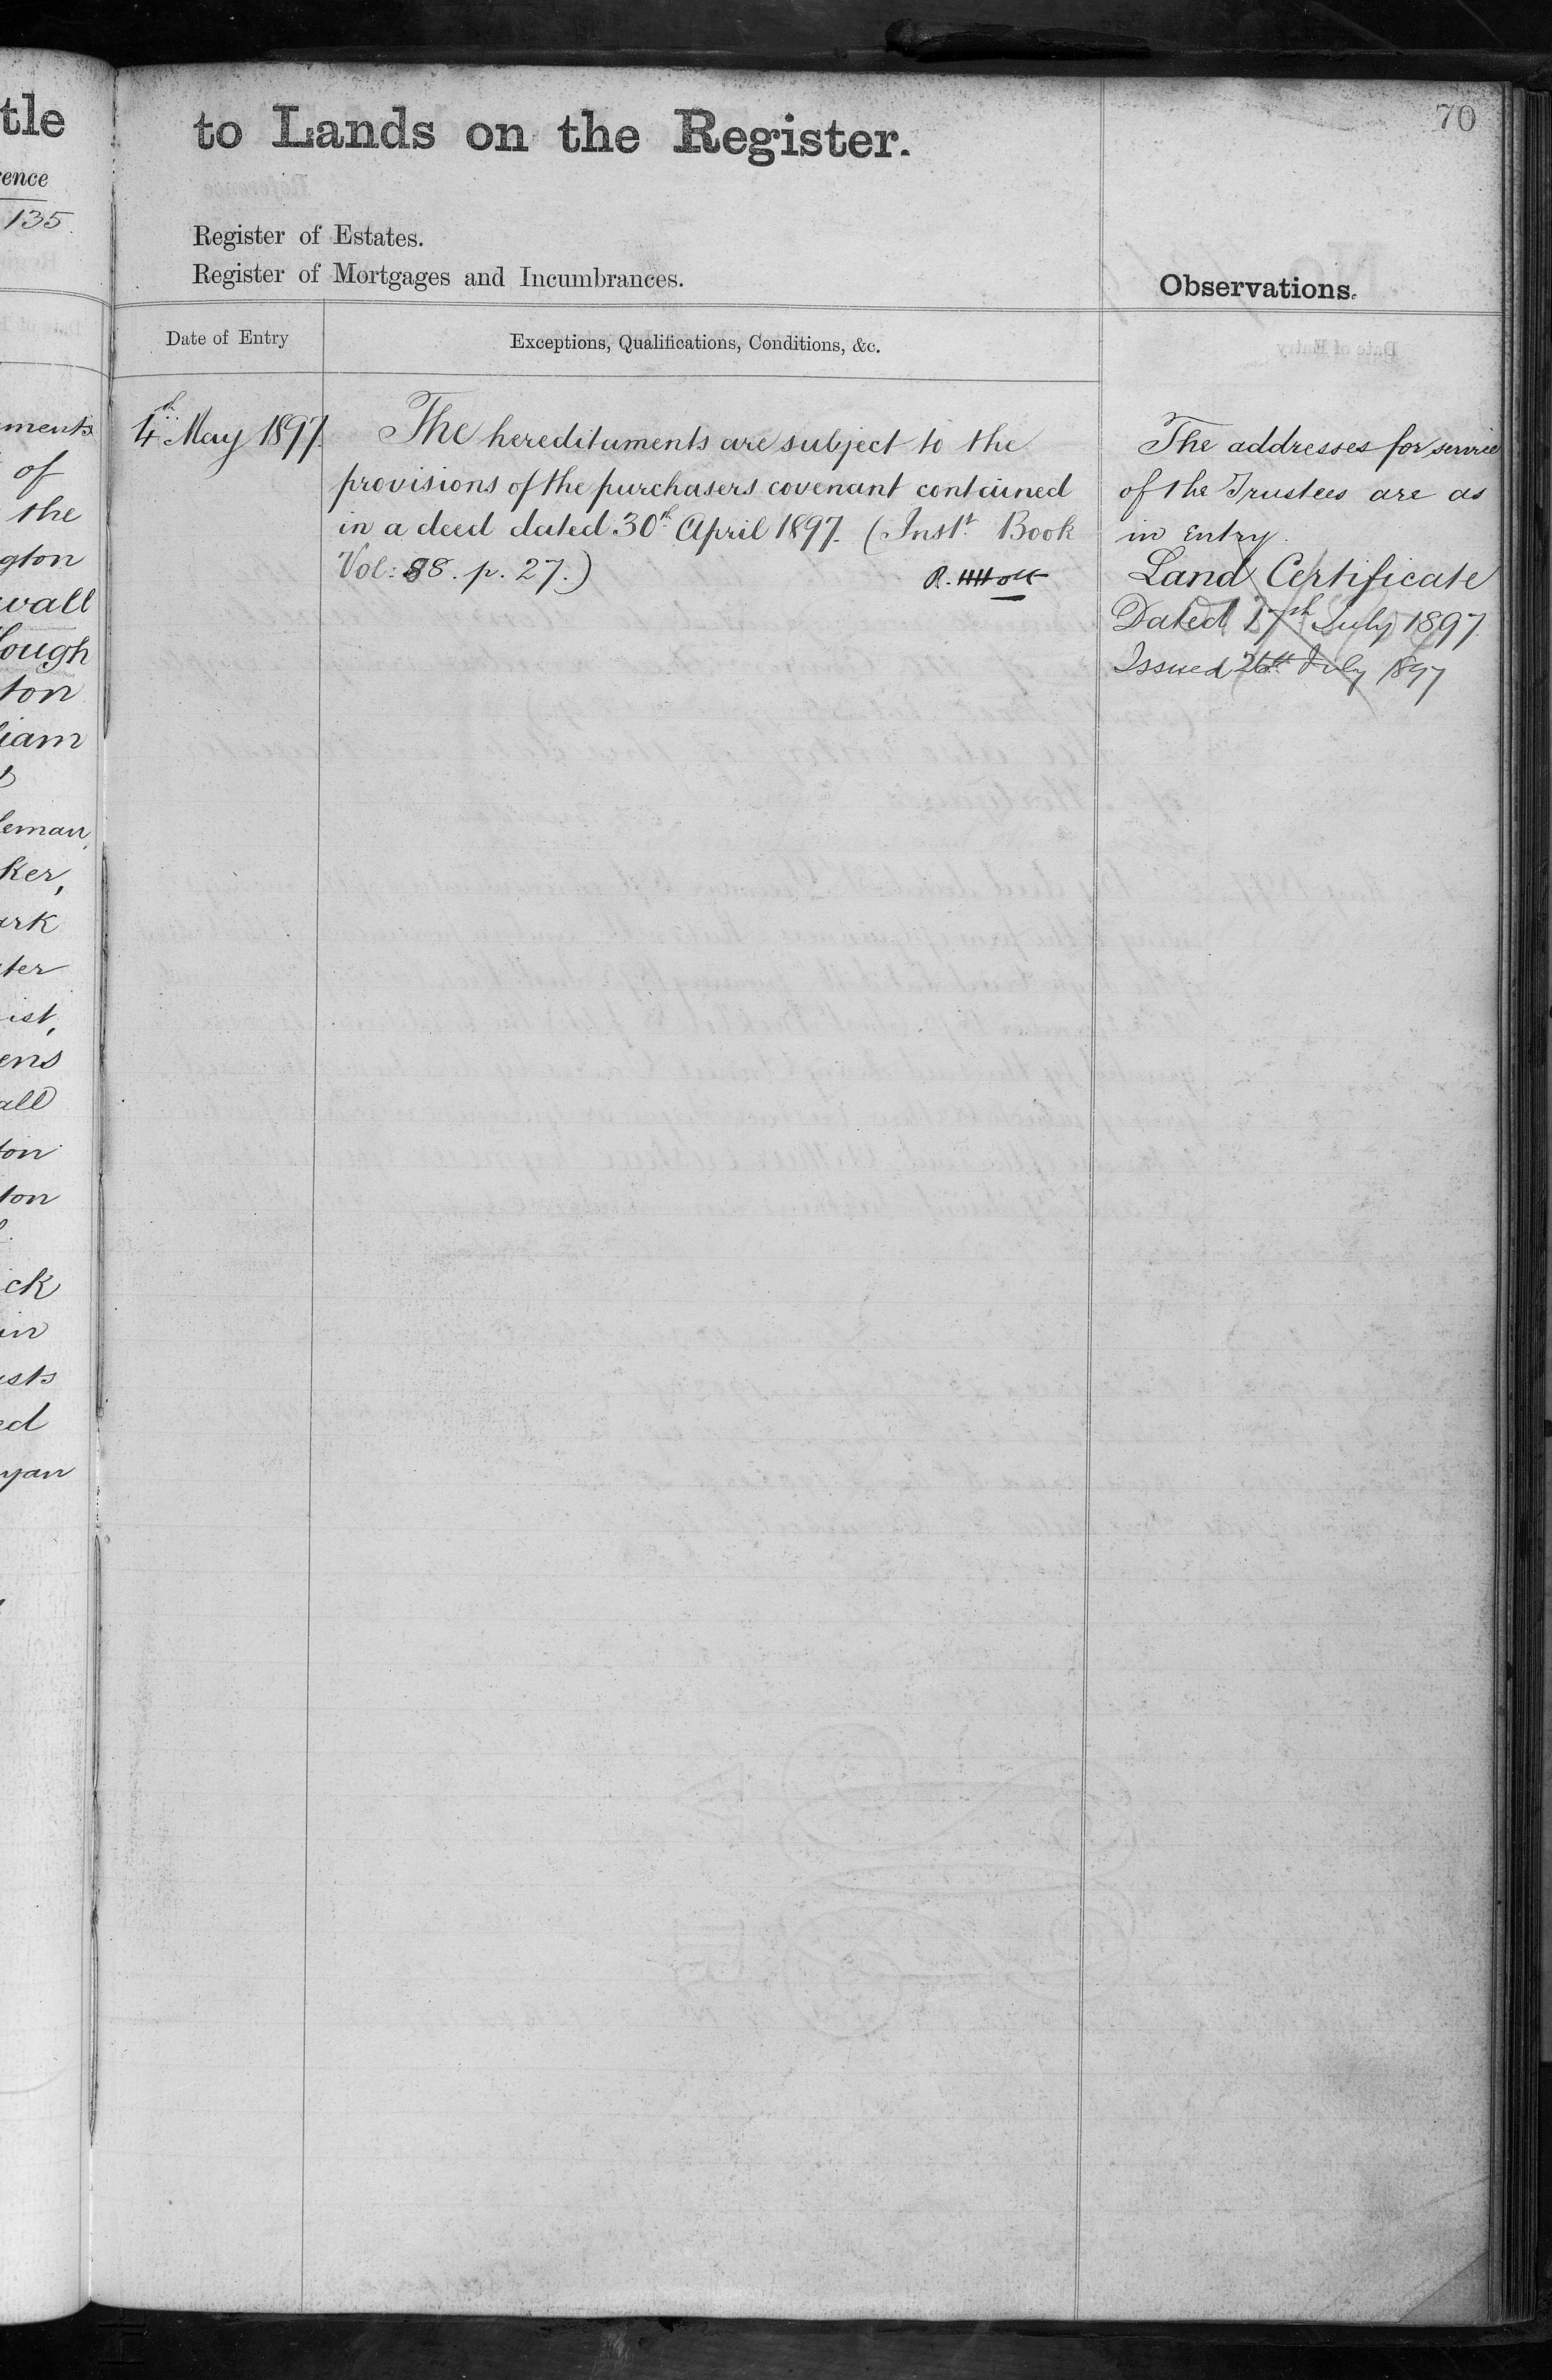 tle
ence
135.
ments
of
the
gton
wall
lough
ton
liam
leman,
ker,
ark
ter
ist,
ens
all
ton
ton
ick
in
usts
ed
yan
70
to Lands on the Register.
Register of Estates.
Register of Mortgages and Incumbrances.
Observations.
Date of Entry
Exceptions, Qualifications, Conditions, &c.
4th May 1897.
The hereditaments are subject to the
provisions of the purchasers covenant contained
in a deed dated 30th April 1897. (Inst. Book
Vol: 88. p. 27.)
The addresses for service
of the Trustees are as
in Entry.
Land Certificate
Dated 17th July 1897.
Issued 26th July 1897